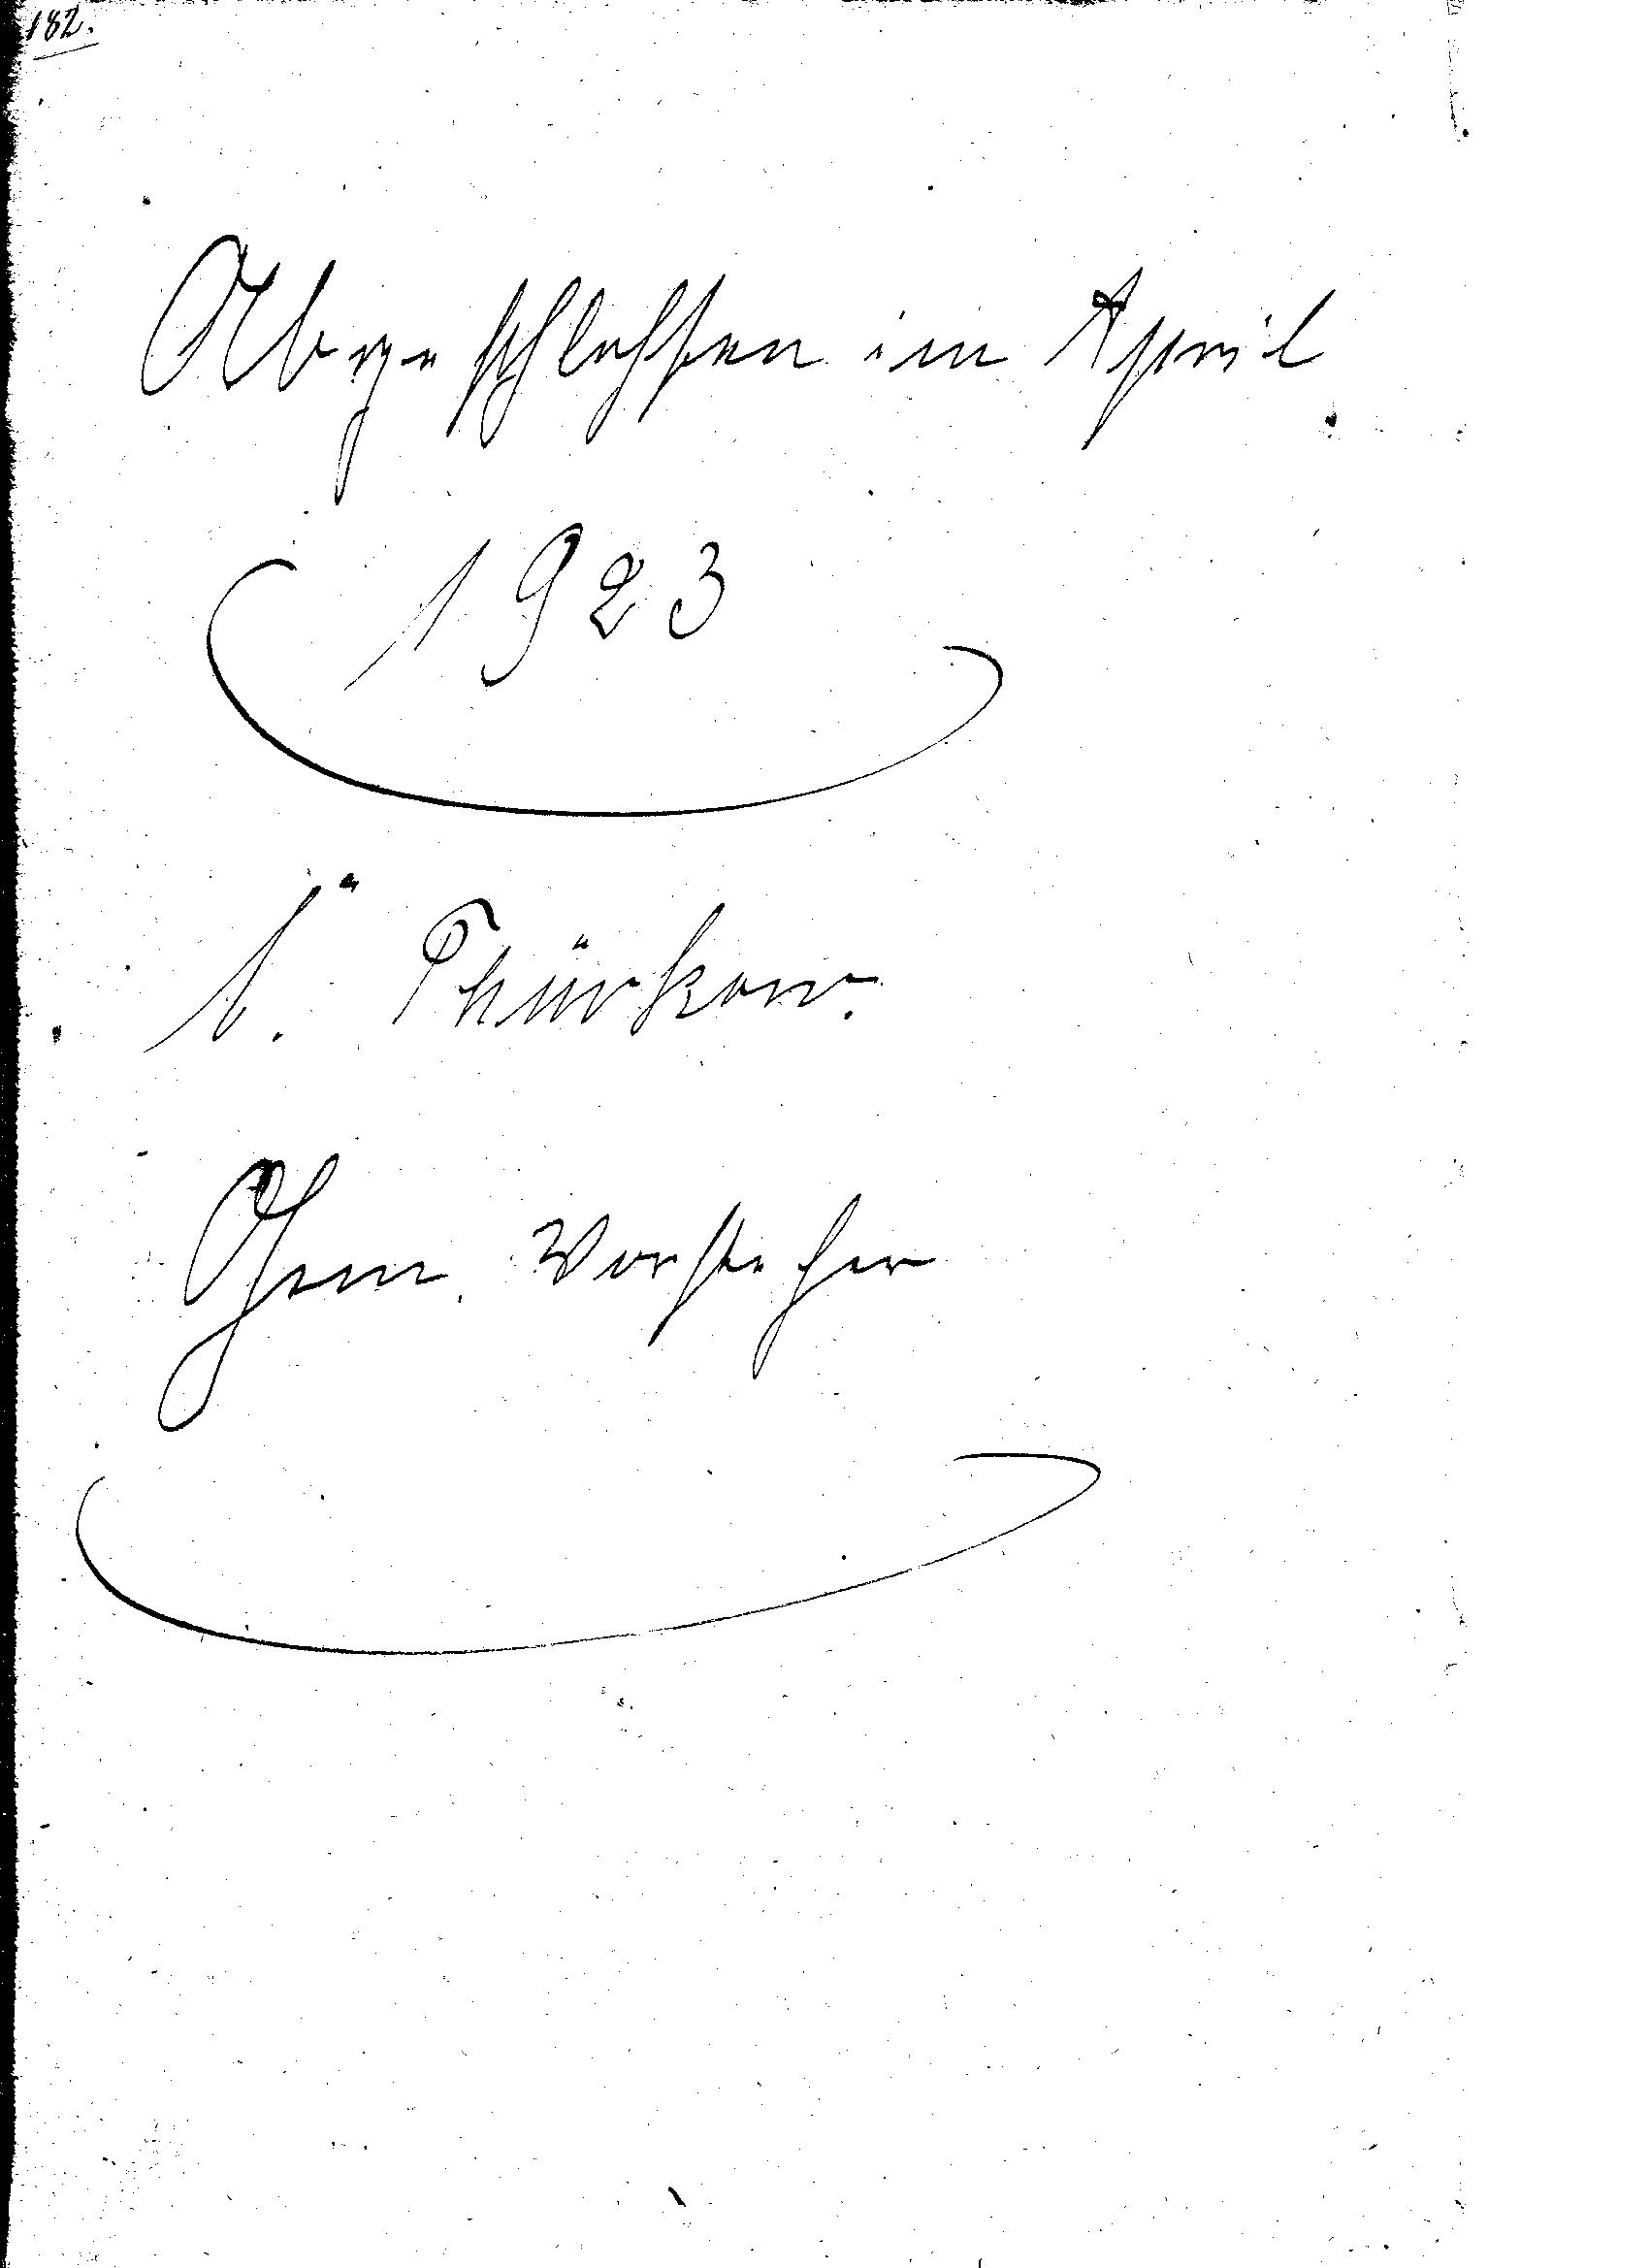 182.
Abgeschlossen im April
1923
Thürkow.
Gem. Vorsteher